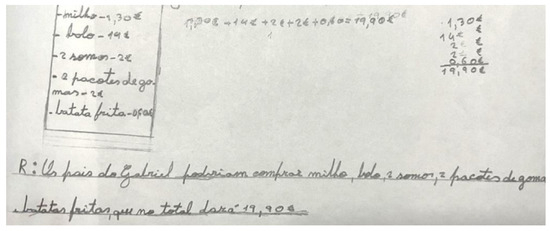 - milho - 1,30€
- bolo - 14€
- 2 somos - 2€
- 2 pacotes de go
mas - 2€
- batata frita - 0,60€
1,30€ + 14€ + 2€ + 2€ + 0,60€ = 19,90€
1,30€
14€ €
2€ €
2€ €
0,60€
19,90€
R: Os pais do Gabriel poderiam comprar milho, bolo, 2 somos, 2 pacotes de goma
, batatas fritas, que no total dará 19,90€